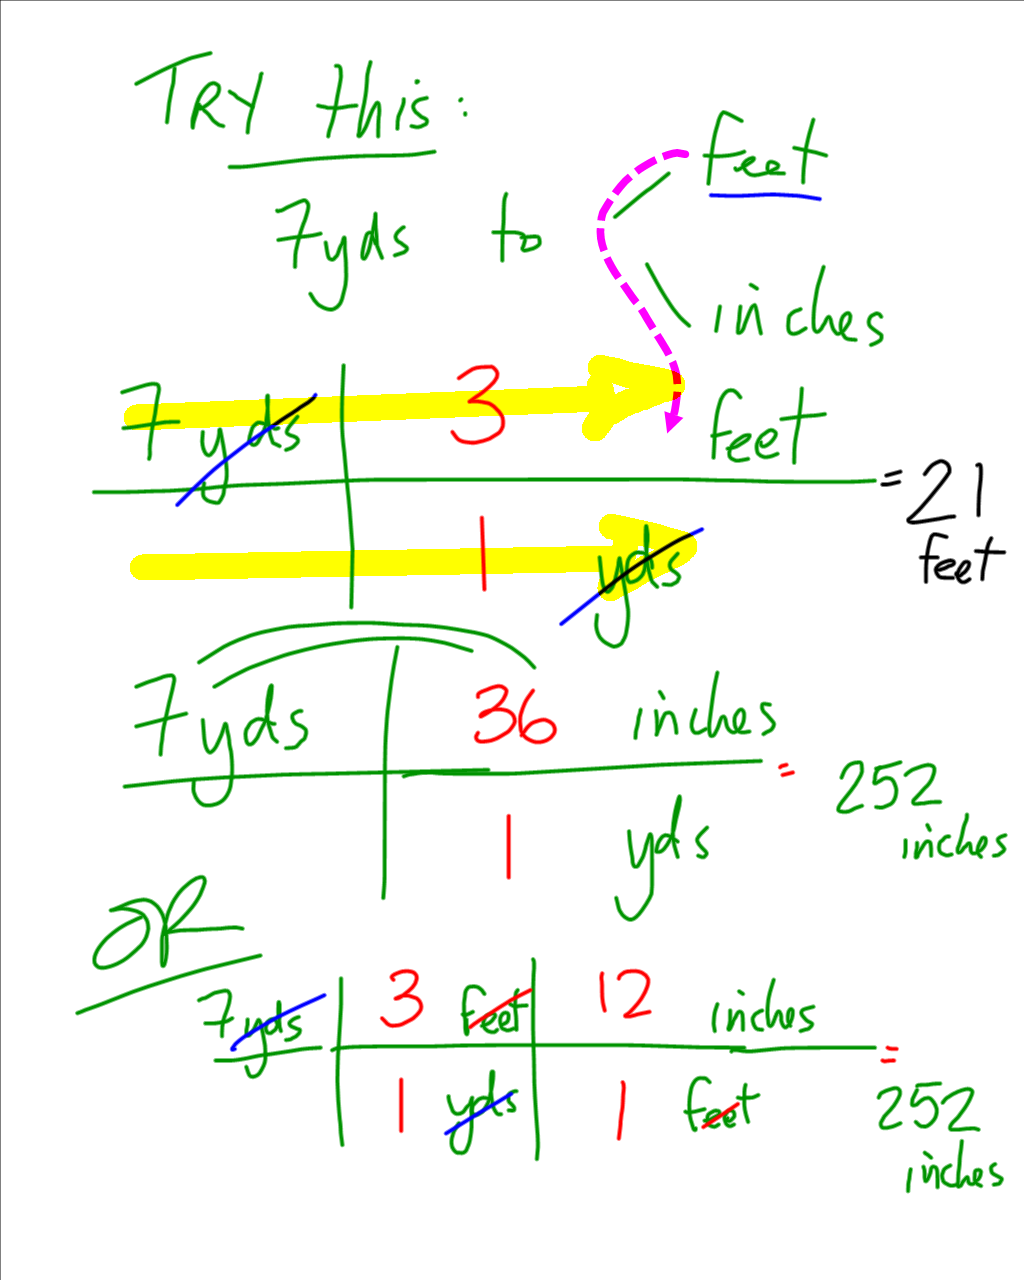 TRY this:
feet
7yds to
inches
7 yds 3 feet
= 21
1 yds
feet
7yds 36 inches
= 252
1 yds
inches
OR
7yds 3 feet 12 inches
=
1 yds 1 feet
252
inches